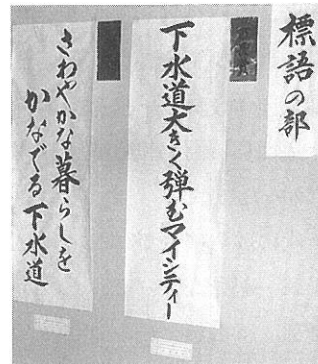 標語の部
下水道大きく弾むマイシティー
さわやかな暮らしを
かなでる下水道